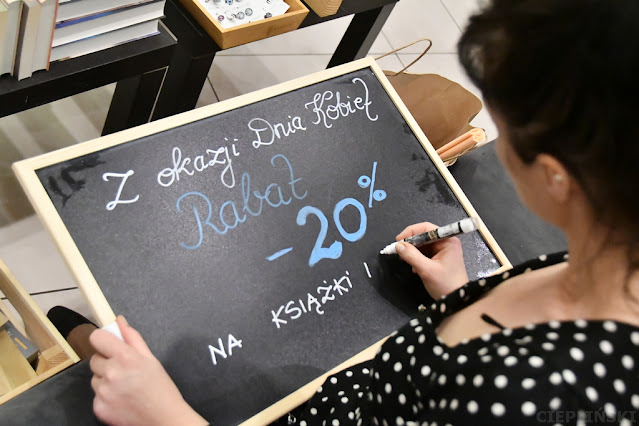 Z okazji Dnia Kobiet
Rabat
-20%
NA KSIĄŻKI I
CIEPLIŃSKI